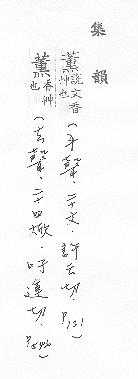 集韻
薰 說文香艸也（平聲，二十文，許云切，P.131）
薰 香艸也（去聲，二十四焮，吁運切，P.546）